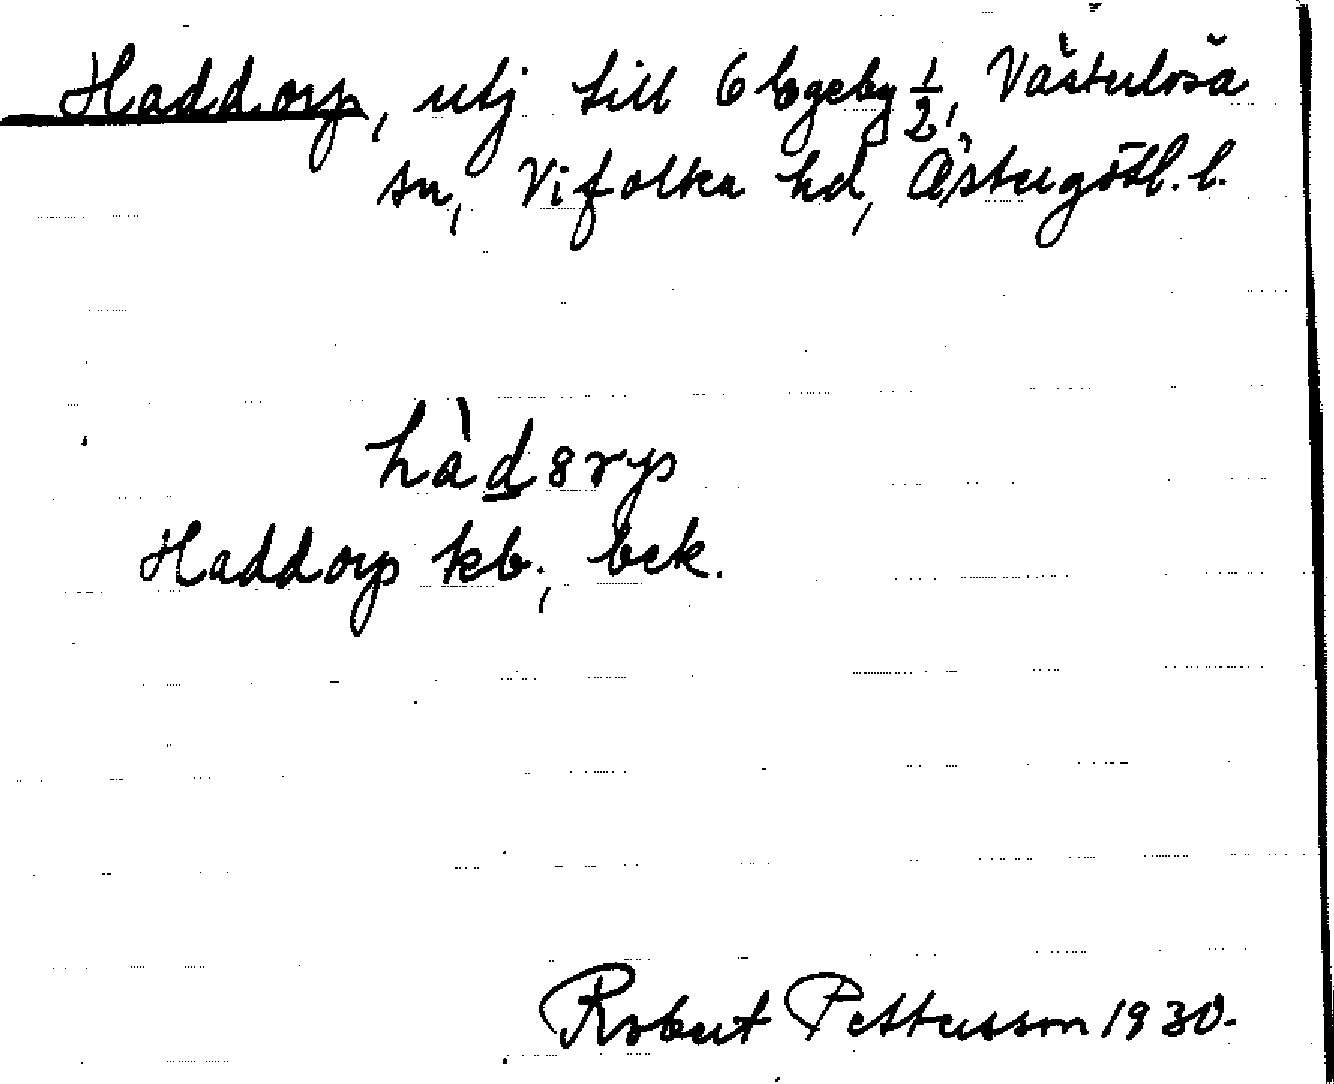 Haddorp, utj till 6 Egeby 1/2, Västerlösa
sn, Vifolka hd, Östergötl. l.
hàd8rp
Haddorp kb., bek.
Robert Pettersson 1930.